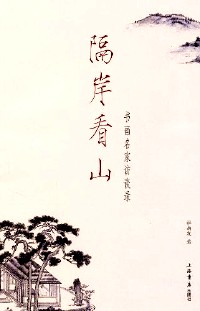 隔岸看山
书画名家访谈录
上海书店出版社